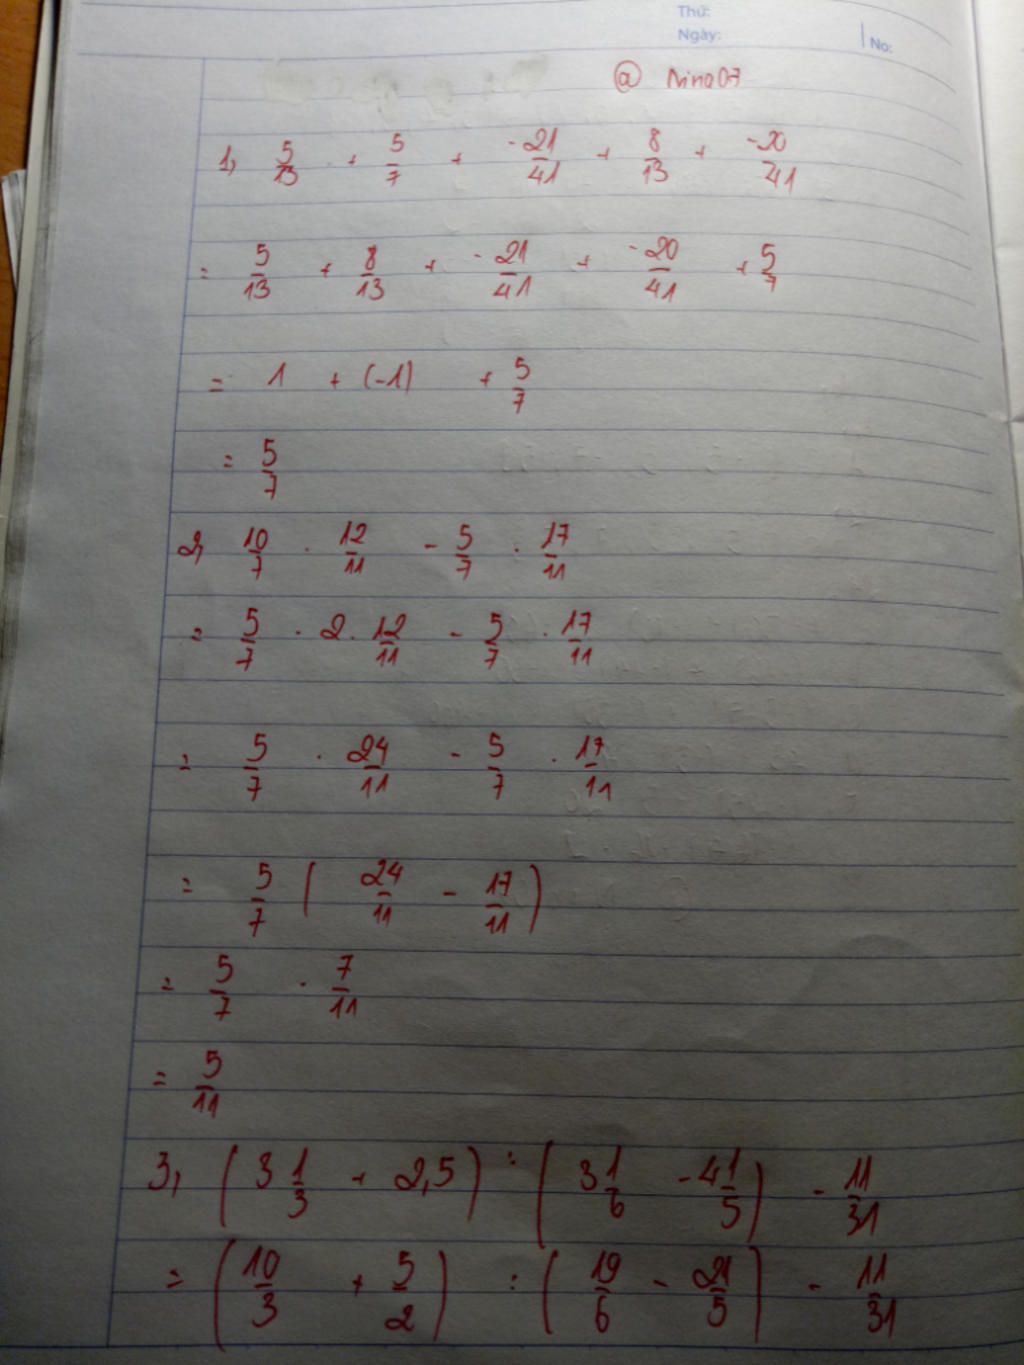 Thứ:
Ngày:
No:
@ Nina07
1, 5/13 + 5/7 + -21/41 + 8/13 + -20/41
= 5/13 + 8/13 + -21/41 + -20/41 + 5/7
= 1 + (-1) + 5/7
= 5/7
2, 10/7 . 12/11 - 5/7 . 17/11
= 5/7 . 2 . 12/11 - 5/7 . 17/11
= 5/7 . 24/11 - 5/7 . 17/11
= 5/7 ( 24/11 - 17/11 )
= 5/7 . 7/11
= 5/11
3, ( 3 1/3 + 2,5 ) : ( 3 1/6 - 4 1/5 ) - 11/31
= ( 10/3 + 5/2 ) : ( 19/6 - 21/5 ) - 11/31